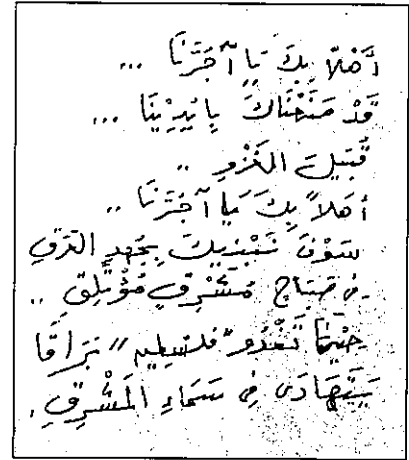 أَهْلاً بِكَ يَا آجُرَّنَا ...
قَدْ صَنَعْنَاكَ بِأَيْدِيْنَا ...
قُبَيْلَ الغَزْوِ ..
أَهْلاً بِكَ يَا آجُرَّنَا ..
سَوْفَ نَبْنِيكَ بِجُهْدِ العَرَقِ
في صَبَاحٍ مُشْرِقٍ مُؤْتَلِقٍ ..
حِيْنَمَا تَغْدُو "فلسطين" بُرَاقًا
يَتَهَادَى فِي سَمَاءِ المَشْرِقِ .